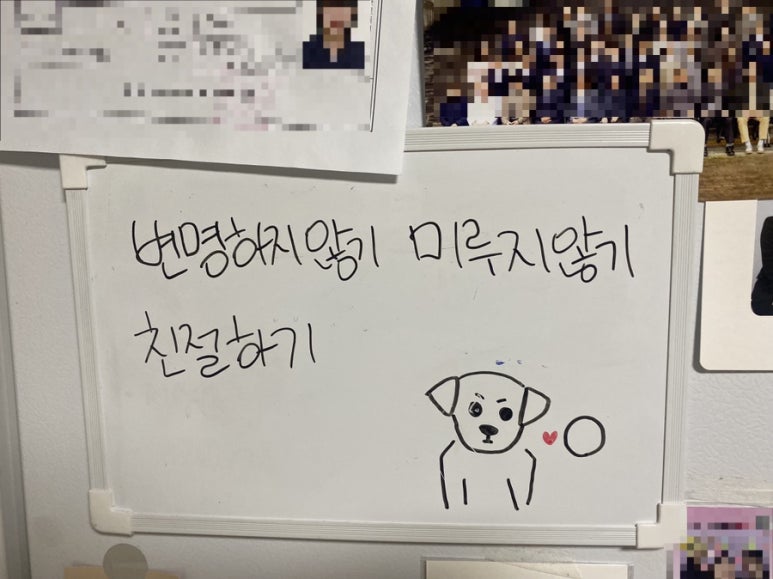 변명하지않기 미루지않기
친절하기